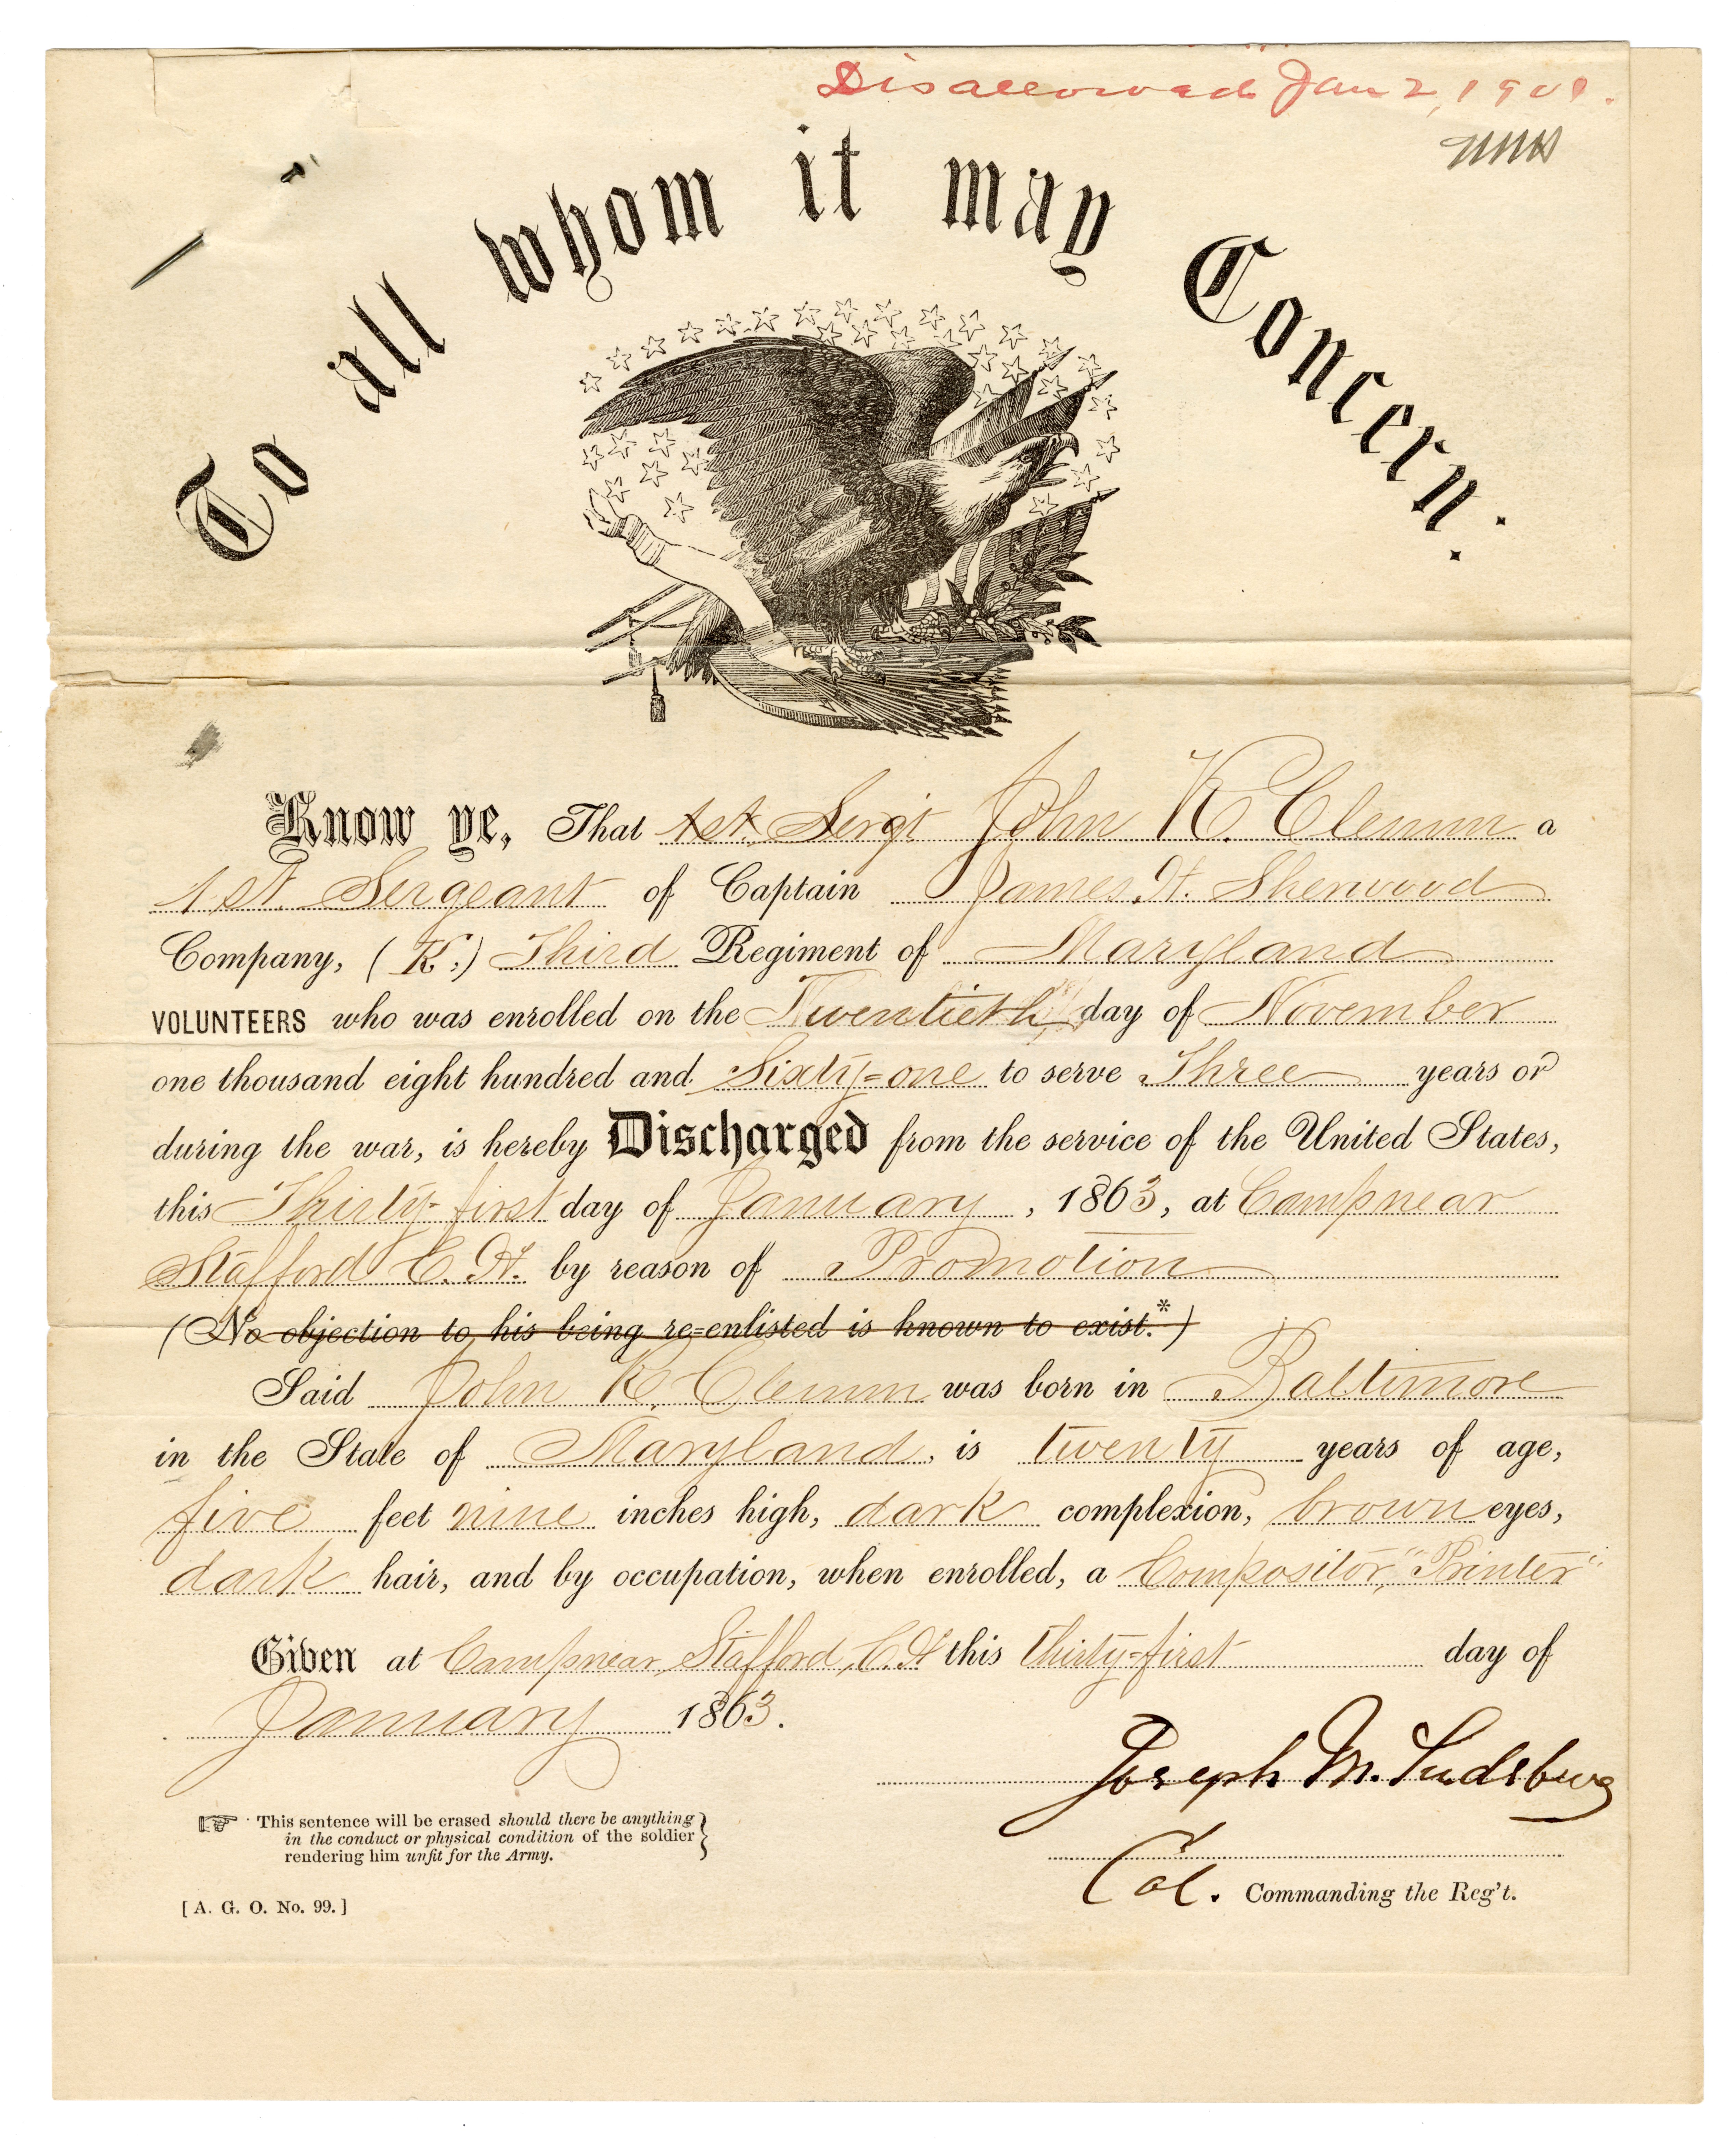 Disallowed Jan 2, 1901.
To all whom it may Concern:
Know ye, That 1st. Sergt John K. Clemm a
1st. Sergeant of Captain James. H. Sherwood
Company, (K.) Third Regiment of Maryland
VOLUNTEERS who was enrolled on the Twentieth day of November
one thousand eight hundred and Sixty=one to serve Three years or
during the war, is hereby Discharged from the service of the United States,
this Thirty=first day of January, 1863, at Camp near
Stafford C. H. by reason of Promotion
(No objection to his being re=enlisted is known to exist.*)
Said John K. Clemm was born in Baltimore
in the State of Maryland, is twenty years of age,
five feet nine inches high, dark complexion, brown eyes,
dark hair, and by occupation, when enrolled, a Compositor, "Printer"
Given at Camp near Stafford, C. H this thirty=first day of
January 1863.
Joseph M. Sudsburg
☞ This sentence will be erased should there be anything
in the conduct or physical condition of the soldier
rendering him unfit for the Army.
Col. Commanding the Reg't.
[A. G. O. No. 99.]